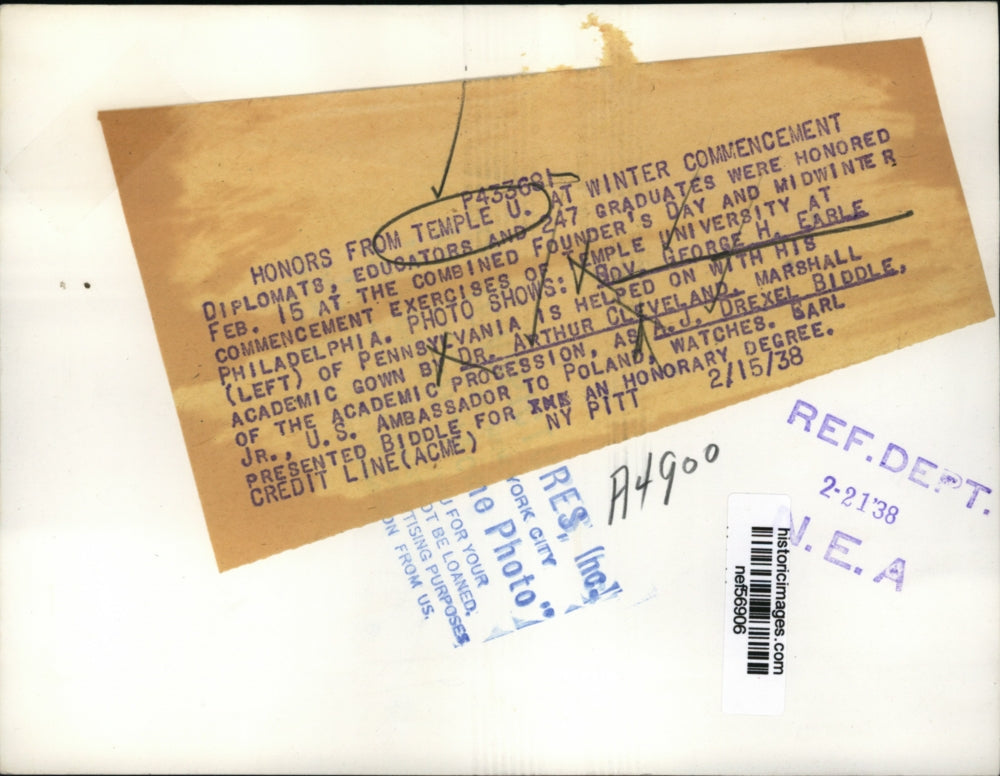 P433681
HONORS FROM TEMPLE U. AT WINTER COMMENCEMENT
DIPLOMATS, EDUCATORS AND 247 GRADUATES WERE HONORED
FEB. 15 AT THE COMBINED FOUNDER'S DAY AND MIDWINTER
COMMENCEMENT EXERCISES OF TEMPLE UNIVERSITY AT
PHILADELPHIA. PHOTO SHOWS: GOV. GEORGE H. EARLE
(LEFT) OF PENNSYLVANIA IS HELPED ON WITH HIS
ACADEMIC GOWN BY DR. ARTHUR CLEVELAND, MARSHALL
OF THE ACADEMIC PROCESSION, AS A.J. DREXEL BIDDLE,
JR., U.S. AMBASSADOR TO POLAND, WATCHES. EARL
PRESENTED BIDDLE FOR AN HONORARY DEGREE.
CREDIT LINE(ACME) NY PITT 2/15/38
A4900
REF.DEPT.
2-21'38
N.E.A
RES, Inc.
YORK CITY
Photo"
FOR YOUR
OT BE LOANED,
TISING PURPOSES
ON FROM US.
historicimages.com
nef56906